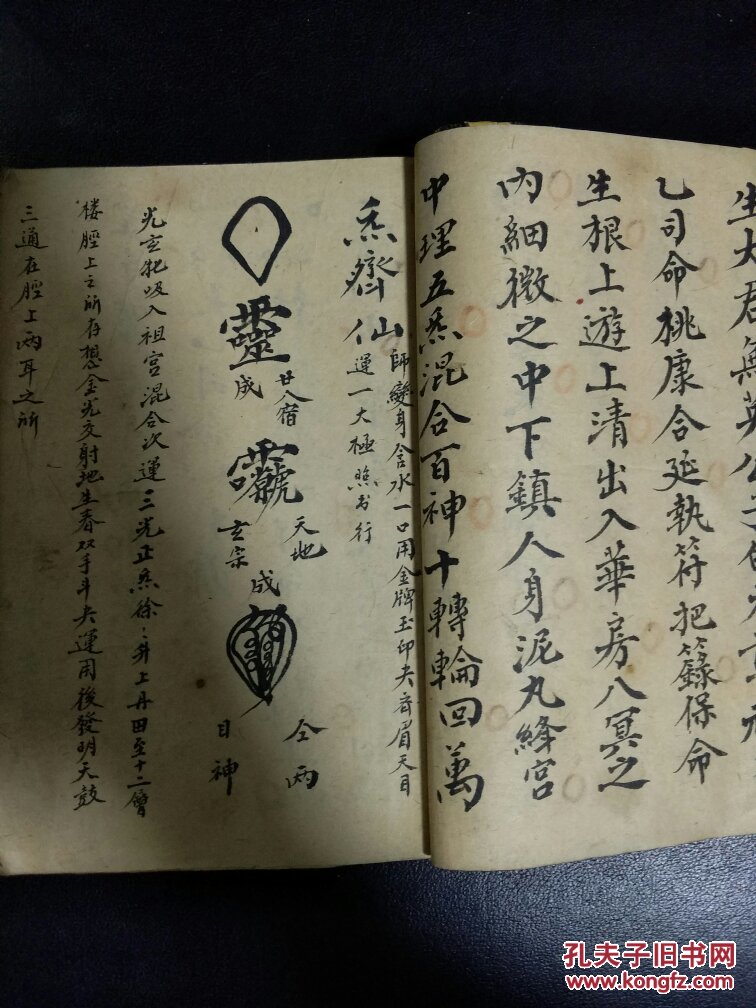 生大君無英公
乙司命桃康合延執符把籙保命
生根上遊上清出入華房八冥之
內細微之中下鎮人身泥丸絳宮
中理五炁混合百神十轉輪回萬
炁齊仙
師變身含水一口用金牌玉印夾齊眉天目
運一大極
行
廿八宿
天地
仝兩
靈
成
成
玄宗
目神
光玄牝吸入祖宮混合次運三光正炁徐〻升上丹田至十二曾
楼脛上之所存想金光交射地生春双手斗夬運用後發明天鼓
三通在脛上两耳之所
孔夫子旧书网
www.kongfz.com